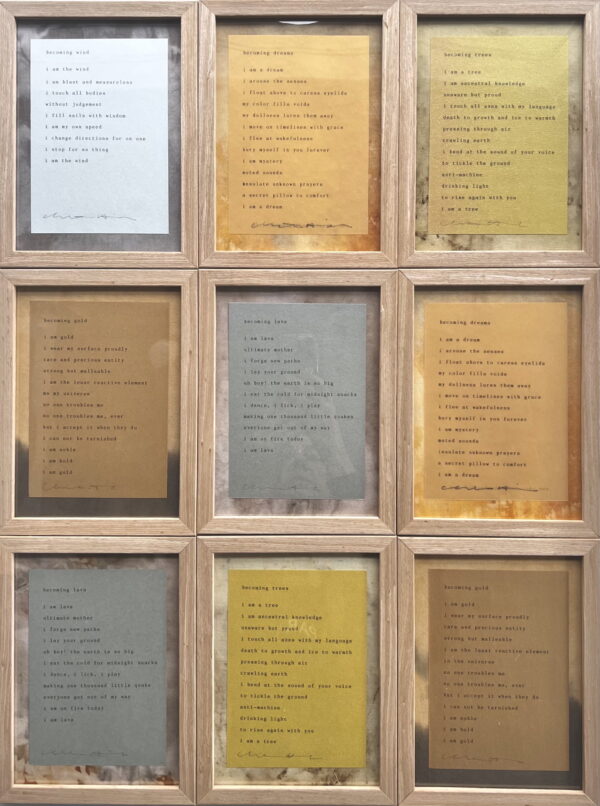 becoming wind
i am the wind
i am blunt and measureless
i touch all bodies
without judgement
i fill sails with wisdom
i am my own speed
i change directions for no one
i stop for no thing
i am the wind
becoming dreams
i am a dream
i arouse the senses
i float above to caress eyelids
my color fills voids
my dullness lures them away
i move on timelines with grace
i flee at wakefulness
bury myself in you forever
i am mystery
muted sounds
insulate unknown prayers
a secret pillow to comfort
i am a dream
becoming trees
i am a tree
i am ancestral knowledge
unaware but proud
i touch all axes with my language
death to growth and ice to warmth
pressing through air
crawling earth
i bend at the sound of your voice
to tickle the ground
anti-machine
drinking light
to rise again with you
i am a tree
becoming gold
i am gold
i wear my surface proudly
rare and precious entity
strong but malleable
i am the least reactive element
no one troubles me
no one troubles me, ever
but i accept it when they do
i can not be tarnished
i am noble
i am bold
i am gold
becoming lava
i am lava
ultimate mother
i forge new paths
i lay your ground
oh boy! the earth is so big
i eat the cold for midnight snacks
i dance, i lick, i play
making one thousand little quakes
everyone get out of my way
i am on fire today
i am lava
becoming dreams
i am a dream
i arouse the senses
i float above to caress eyelids
my color fills voids
my dullness lures them away
i move on timelines with grace
i flee at wakefulness
bury myself in you forever
i am mystery
muted sounds
insulate unknown prayers
a secret pillow to comfort
i am a dream
becoming lava
i am lava
ultimate mother
i forge new paths
i lay your ground
oh boy! the earth is so big
i eat the cold for midnight snacks
i dance, i lick, i play
making one thousand little quakes
everyone get out of my way
i am on fire today
i am lava
becoming trees
i am a tree
i am ancestral knowledge
unaware but proud
i touch all axes with my language
death to growth and ice to warmth
pressing through air
crawling earth
i bend at the sound of your voice
to tickle the ground
anti-machine
drinking light
to rise again with you
i am a tree
becoming gold
i am gold
i wear my surface proudly
rare and precious entity
strong but malleable
i am the least reactive element
in the universe
no one troubles me
no one troubles me, ever
but i accept it when they do
i can not be tarnished
i am noble
i am bold
i am gold